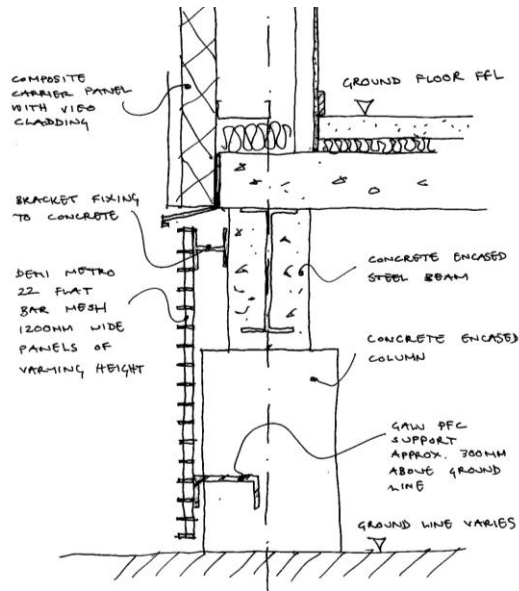 COMPOSITE
CARRIER PANEL
WITH VIEO
CLADDING
GROUND FLOOR FFL
BRACKET FIXING
TO CONCRETE
DEMI METRO
22 FLAT
BAR MESH
1200MM WIDE
PANELS OF
VARYING HEIGHT
CONCRETE ENCASED
STEEL BEAM
CONCRETE ENCASED
COLUMN
GALV PFC
SUPPORT
APPROX. 300MM
ABOVE GROUND
LINE
GROUND LINE VARIES